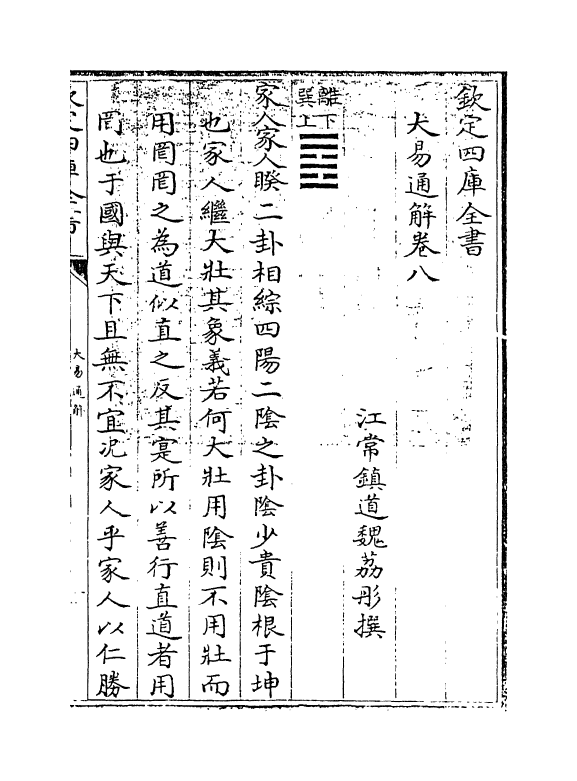 欽定四庫全書
大易通解卷八
江常鎮道魏荔彤撰
離下
巽上
家人家人睽二卦相綜四陽二陰之卦陰少貴陰根于坤
也家人繼大壯其象義若何大壯用陰則不用壯而
用罔罔之為道似直之反其寔所以善行直道者用
罔也于國與天下且無不宜况家人乎家人以仁勝
欽定四庫全書
大易通解